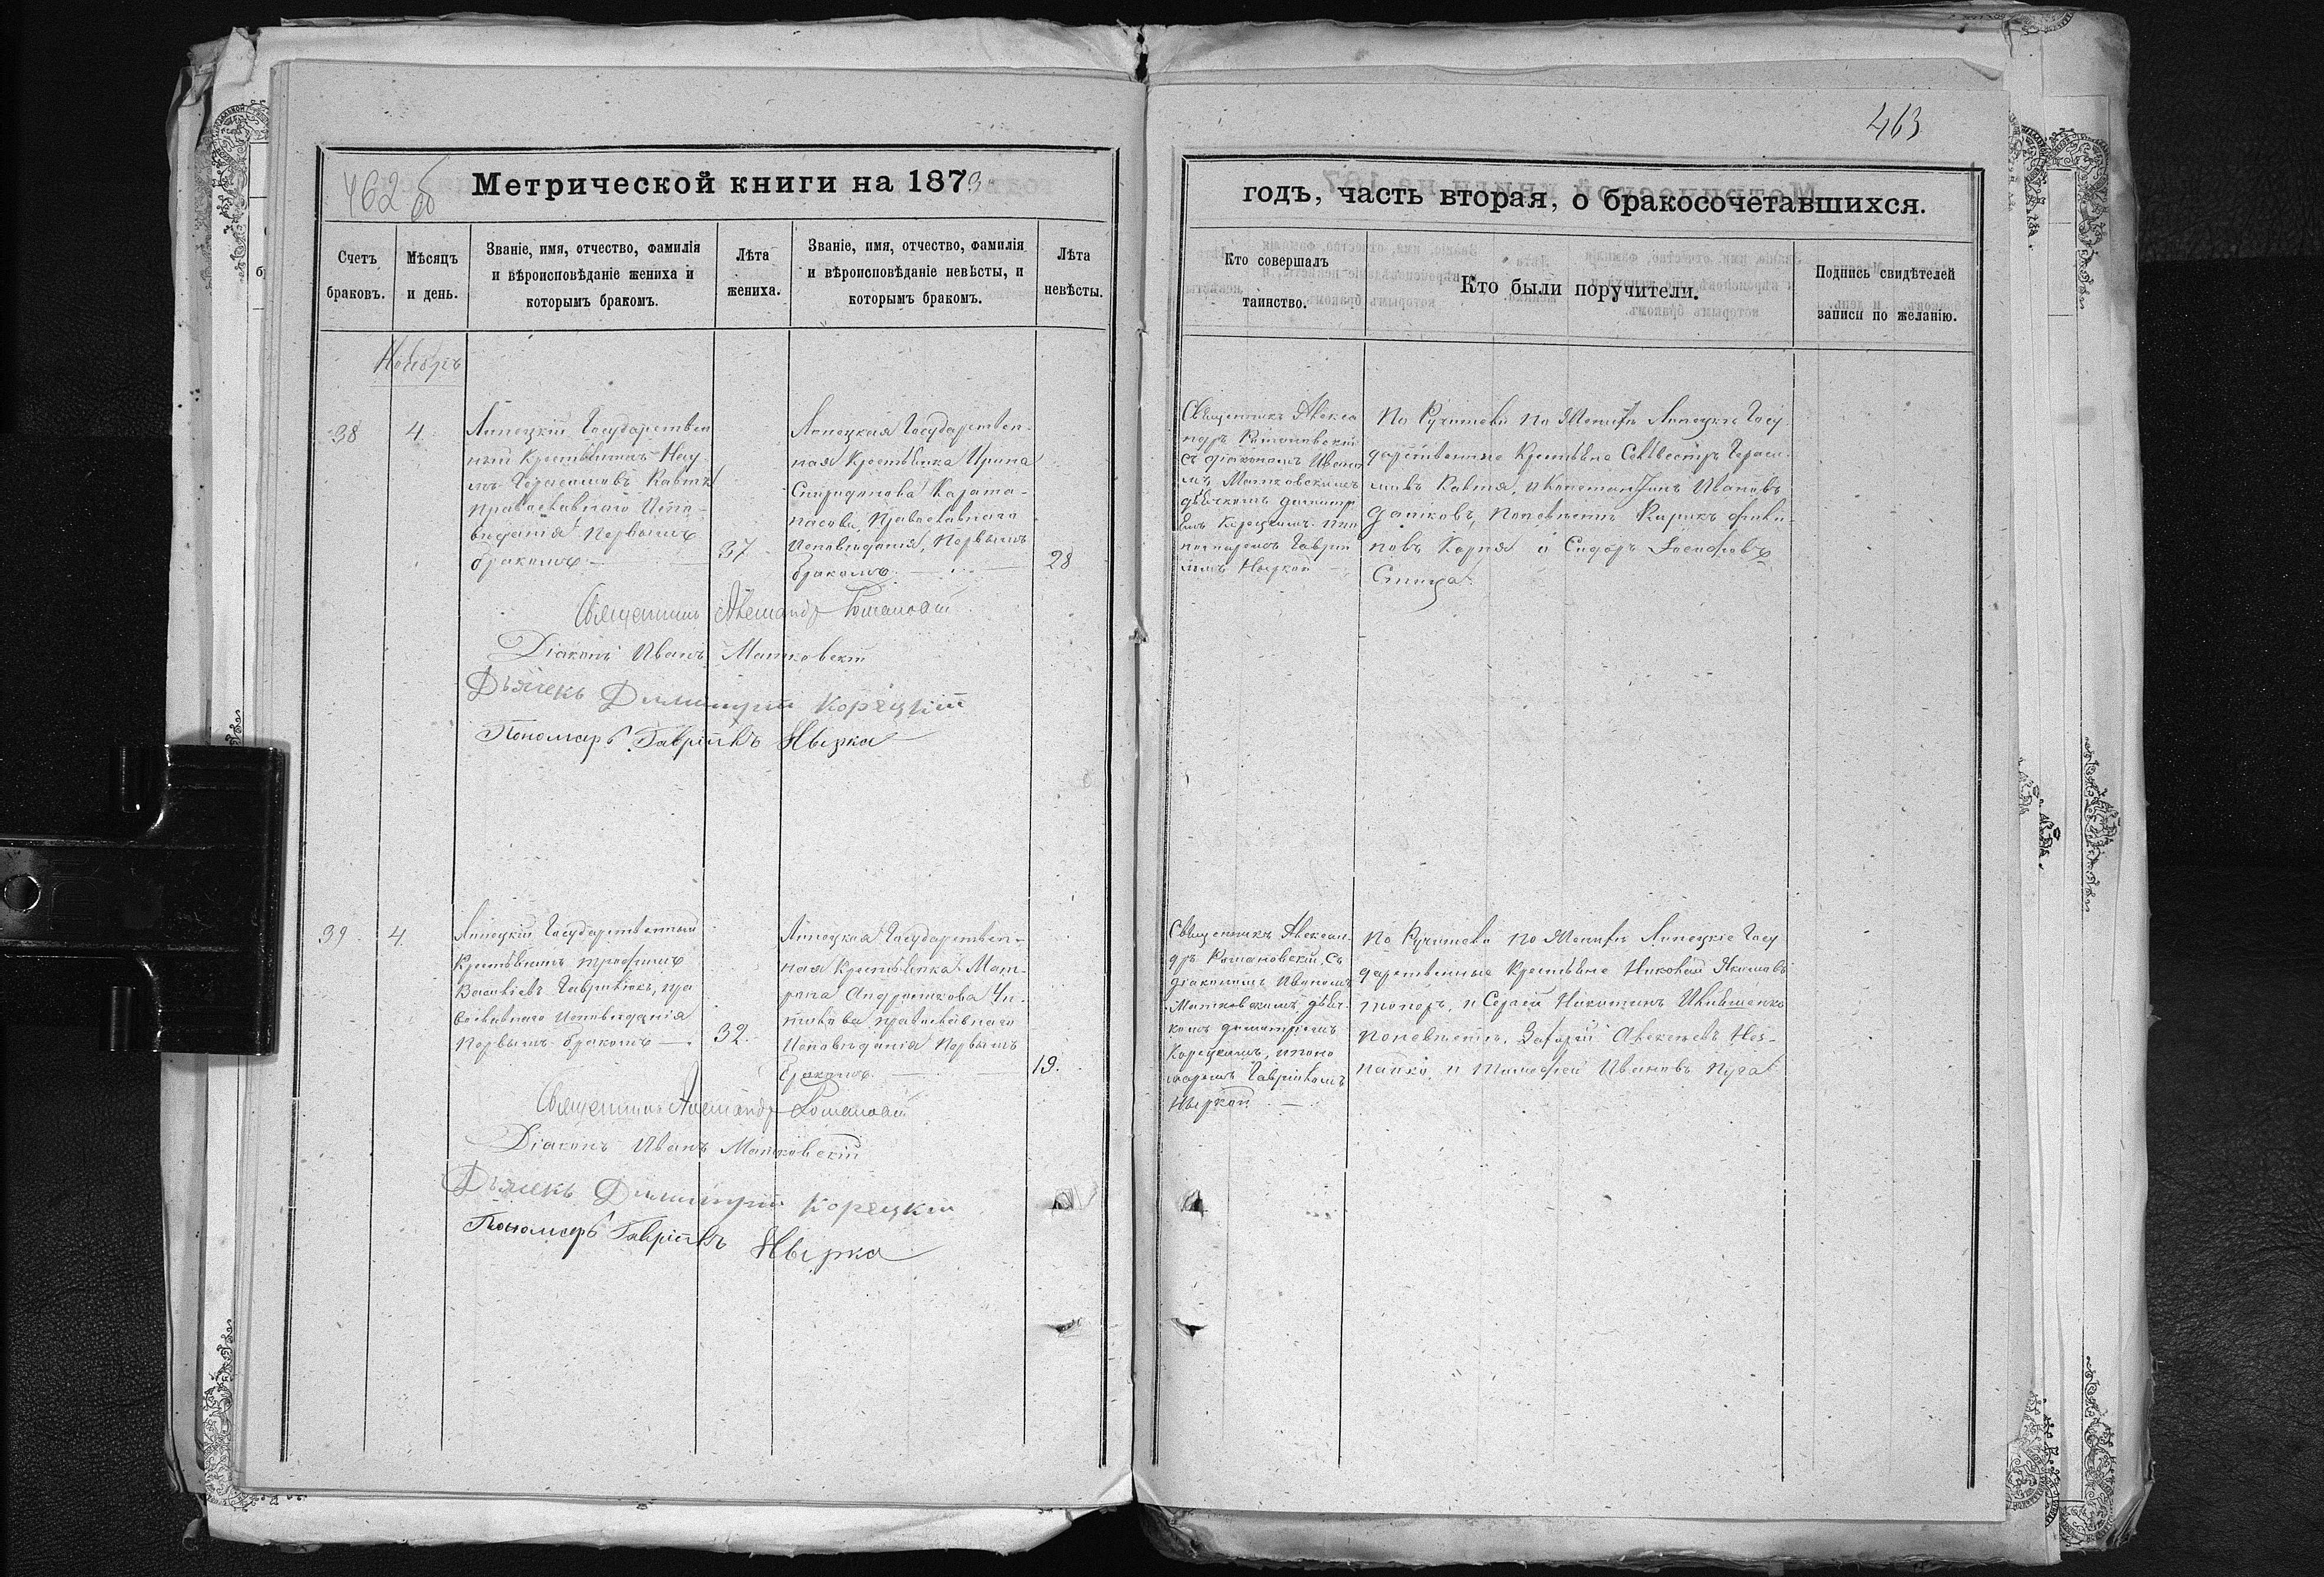 462 об
Метрической книги на 1873
Счетъ браковъ.
Мѣсяцъ и день.
Званіе, имя, отчество, фамилія
и вѣроисповѣданіе жениха и
которымъ бракомъ.
Лѣта
жениха.
Званіе, имя, отчество, фамилія
и вѣроисповѣданіе невѣсты, и
которымъ бракомъ.
Лѣта
невѣсты.
Ноябрь
38
4
Липецкій Государствен
ный Крестьянинъ Нау
мъ Герасимовъ
православнаго Испо-
вѣданія Первымъ
бракомъ
37
Липецкая Государствен-
ная Крестьянка Ирина
Спиридонова
Православнаго
Исповѣданія, Первымъ
бракомъ
28
Священникъ Александръ Романовскій
Діаконъ Иванъ Матковскій
Дьячекъ Димитрій Корецкій
Пономарь Гавріилъ Нырка
39
4
Липецкій Государственный
Крестьянинъ Трофимъ
Васильевъ Гаврилюкъ, пра
вославнаго Исповѣданія
Первымъ бракомъ
32
Липецкая Государствен-
ная Крестьянка Мат-
рона
православнаго
Исповѣданія Первымъ
бракомъ
19
Священникъ Александръ Романовскій
Діаконъ Иванъ Матковскій
Дьячекъ Димитрій Корецкій
Пономарь Гавріилъ Нырка
463
годъ, часть вторая, о бракосочетавшихся.
Кто совершалъ
таинство.
Кто были поручители.
Подпись свидѣтелей
записи по желанію.
Священникъ Алекса
ндръ Романовскій
съ діакономъ Ивано
мъ Матковскимъ
дьячкомъ Димитрі
емъ Корецкимъ
пономаремъ Гаврі
иломъ Ныркой
По Женихѣ Липецкіе Госу
дарственные Крестьяне Сильвестръ Гераси-
мовъ и Константинъ Ивановъ
по невѣстѣ
и Сидоръ Іосифовъ
Спица
Священникъ Алексан-
дръ Романовскій, съ
діакономъ Иваномъ
Матковскимъ, дьяч-
комъ Димитріемъ
Корецкимъ, и поно
маремъ Гавріиломъ
Ныркой
По Женихѣ Липецкіе Госу
дарственные Крестьяне Николай Якимовъ
и Сергій Никитинъ
по невѣстѣ, Захарій Алексѣевъ
и Тимофей Ивановъ